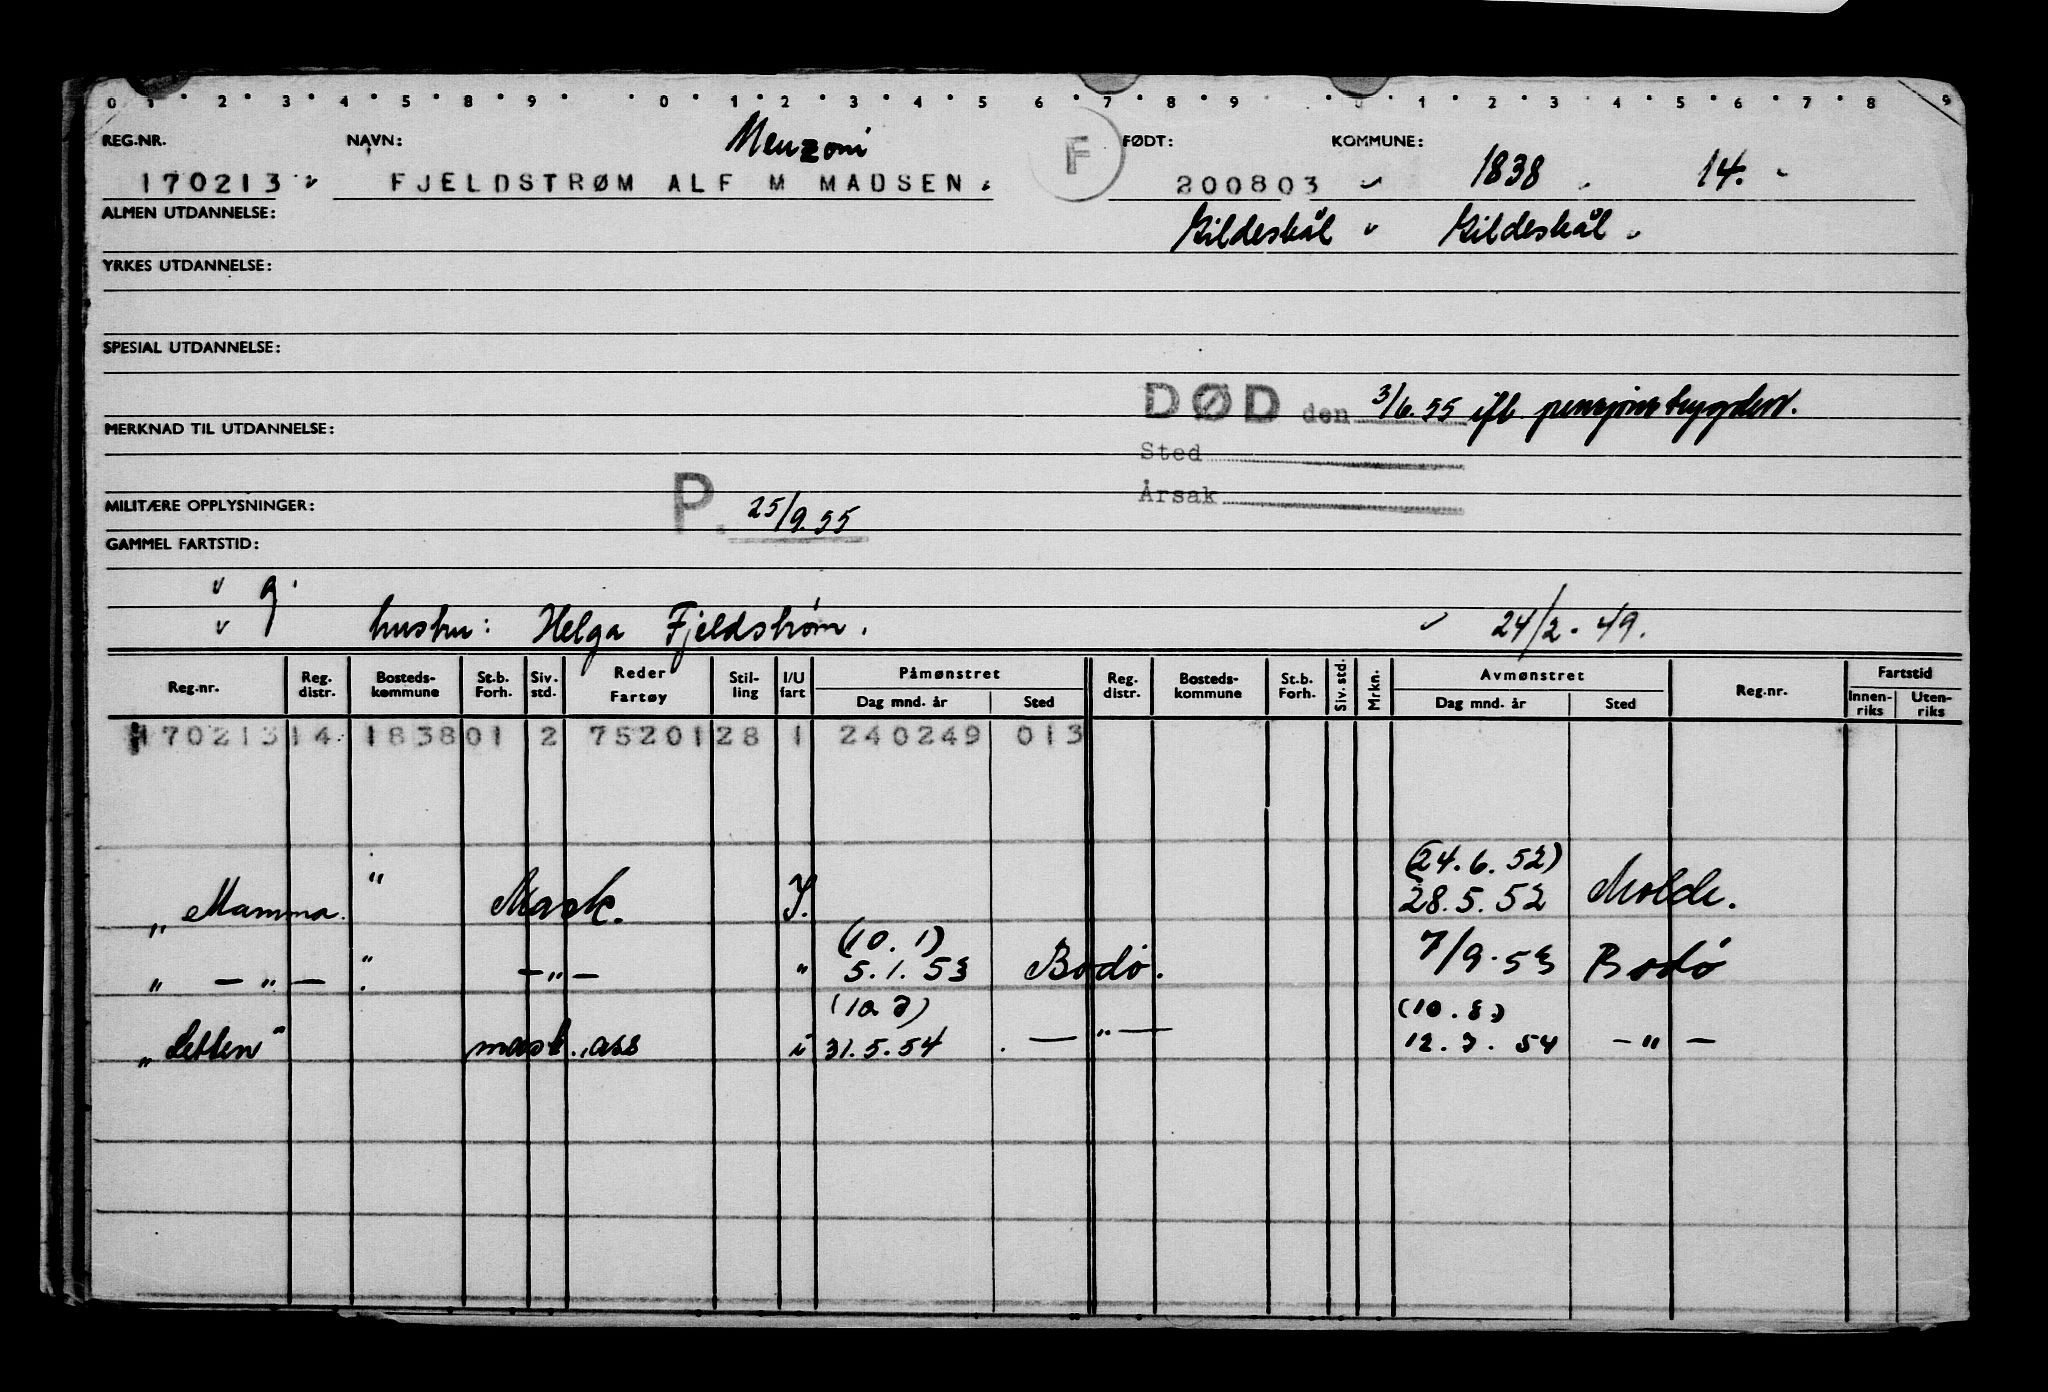 0 1 2 3 4 5 8 9 0 1 2 3 4 5 6 7 8 9 0 1 2 3 4 5 6 7 8 9
REG.NR. NAVN: Menzoni F FØDT: KOMMUNE:
170213 FJELDSTRØM ALF M MADSEN. 200803 1838 14.
ALMEN UTDANNELSE: Gildeskål Gildeskål
YRKES UTDANNELSE:
SPESIAL UTDANNELSE:
DØD den 3/6.55 ifl. pensjonstrygden.
MERKNAD TIL UTDANNELSE:
Sted
Årsak
MILITÆRE OPPLYSNINGER: P. 25/9.55
GAMMEL FARTSTID:
g.
hustru: Helga Fjeldstrøm. 24/2.49.
Reg.nr. Reg. distr. Bosteds-kommune St.b. Forh. Siv. std. Reder Fartøy Stil-ling I/U fart Påmønstret Dag mnd. år Sted Reg. distr. Bosteds-kommune St.b. Forh. Siv. std. Mrkn. Avmønstret Dag mnd. år Sted Reg.nr. Fartstid Innen-riks Uten-riks
170213 14 1838 01 2 75201 28 1 240249 013
(24.6.52)
„Mamma. " Mask. I. 28.5.52 Molde.
(10.1)
„ — „ — " — „ — " 5.1.53 Bodø. 7/9.53 Bodø
(10.7) (10.8)
„Letten" mask.ass i 31.5.54 — „ — 12.7.54 — „ —